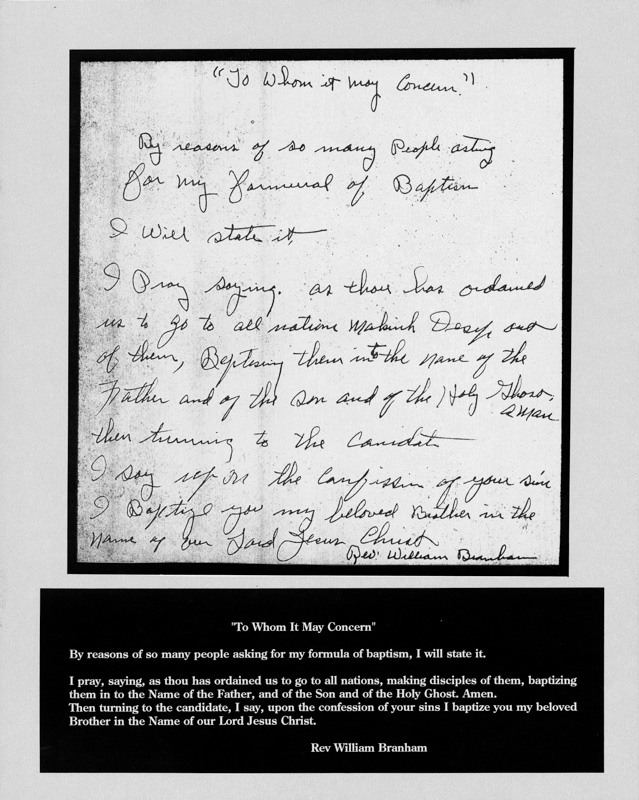 "To Whom it may Concern."
By reasons of so many People asking
for my formeral of Baptism
I Will state it,
I Pray saying. as thou has ordained
us to go to all nations Makinh Desyp out
of them, Baptising them into the name of the
Father and of the son and of the Holy Ghost,
aman
then turning to the Canidate
I say up on the Confission of your sins
I Baptize you my beloved Brother in the
Name of our Lord Jesus Christ
Rev. William Branham
"To Whom It May Concern"
By reasons of so many people asking for my formula of baptism, I will state it.
I pray, saying, as thou has ordained us to go to all nations, making disciples of them, baptizing
them in to the Name of the Father, and of the Son and of the Holy Ghost. Amen.
Then turning to the candidate, I say, upon the confession of your sins I baptize you my beloved
Brother in the Name of our Lord Jesus Christ.
Rev William Branham